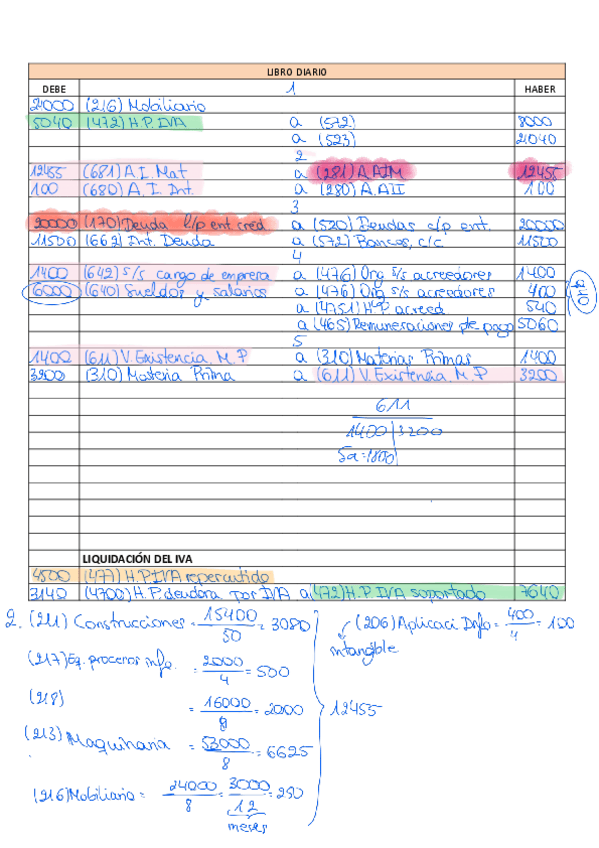 LIBRO DIARIO
DEBE 1 HABER
24000 (216) Mobiliario
5040 (472) H.P. IVA a (572) 8000
a (523) 21040
2
12455 (681) A.I. Mat a (281) A.AIM 12455
100 (680) A.I. Int. a (280) A.AII 100
3
20000 (170) Deuda l/p ent. créd a (520) Deudas c/p ent. 20000
11500 (662) Int. Deuda a (572) Bancos, c/c 11500
4
1400 (642) s/s cargo de empresa a (476) Org s/s acreedores 1400
6000 (640) Sueldos y salarios a (476) Org s/s acreedores 400
a (4751) HP acreed. 540
a (465) Remuneraciones de pago 5060
5
1400 (611) V. Existencia M.P a (310) Materias Primas 1400
3200 (310) Materia Prima a (611) V. Existencia M.P 3200
611
1400 | 3200
Sa=1800
LIQUIDACIÓN DEL IVA
4500 (477) H.P.IVA repercutido
3140 (4700) H.P. deudora por IVA a (472) H.P. IVA soportado 7640
2. (211) Construcciones = 15400/50 = 3080 (206) Aplicaci Info = 400/4 = 100
intangible
(217) Eq. procesos info. = 2000/4 = 500
(218) = 16000/8 = 2000 12455
(213) Maquinaria = 53000/8 = 6625
(216) Mobiliario = 24000/8 = 3000/12 = 250
meses